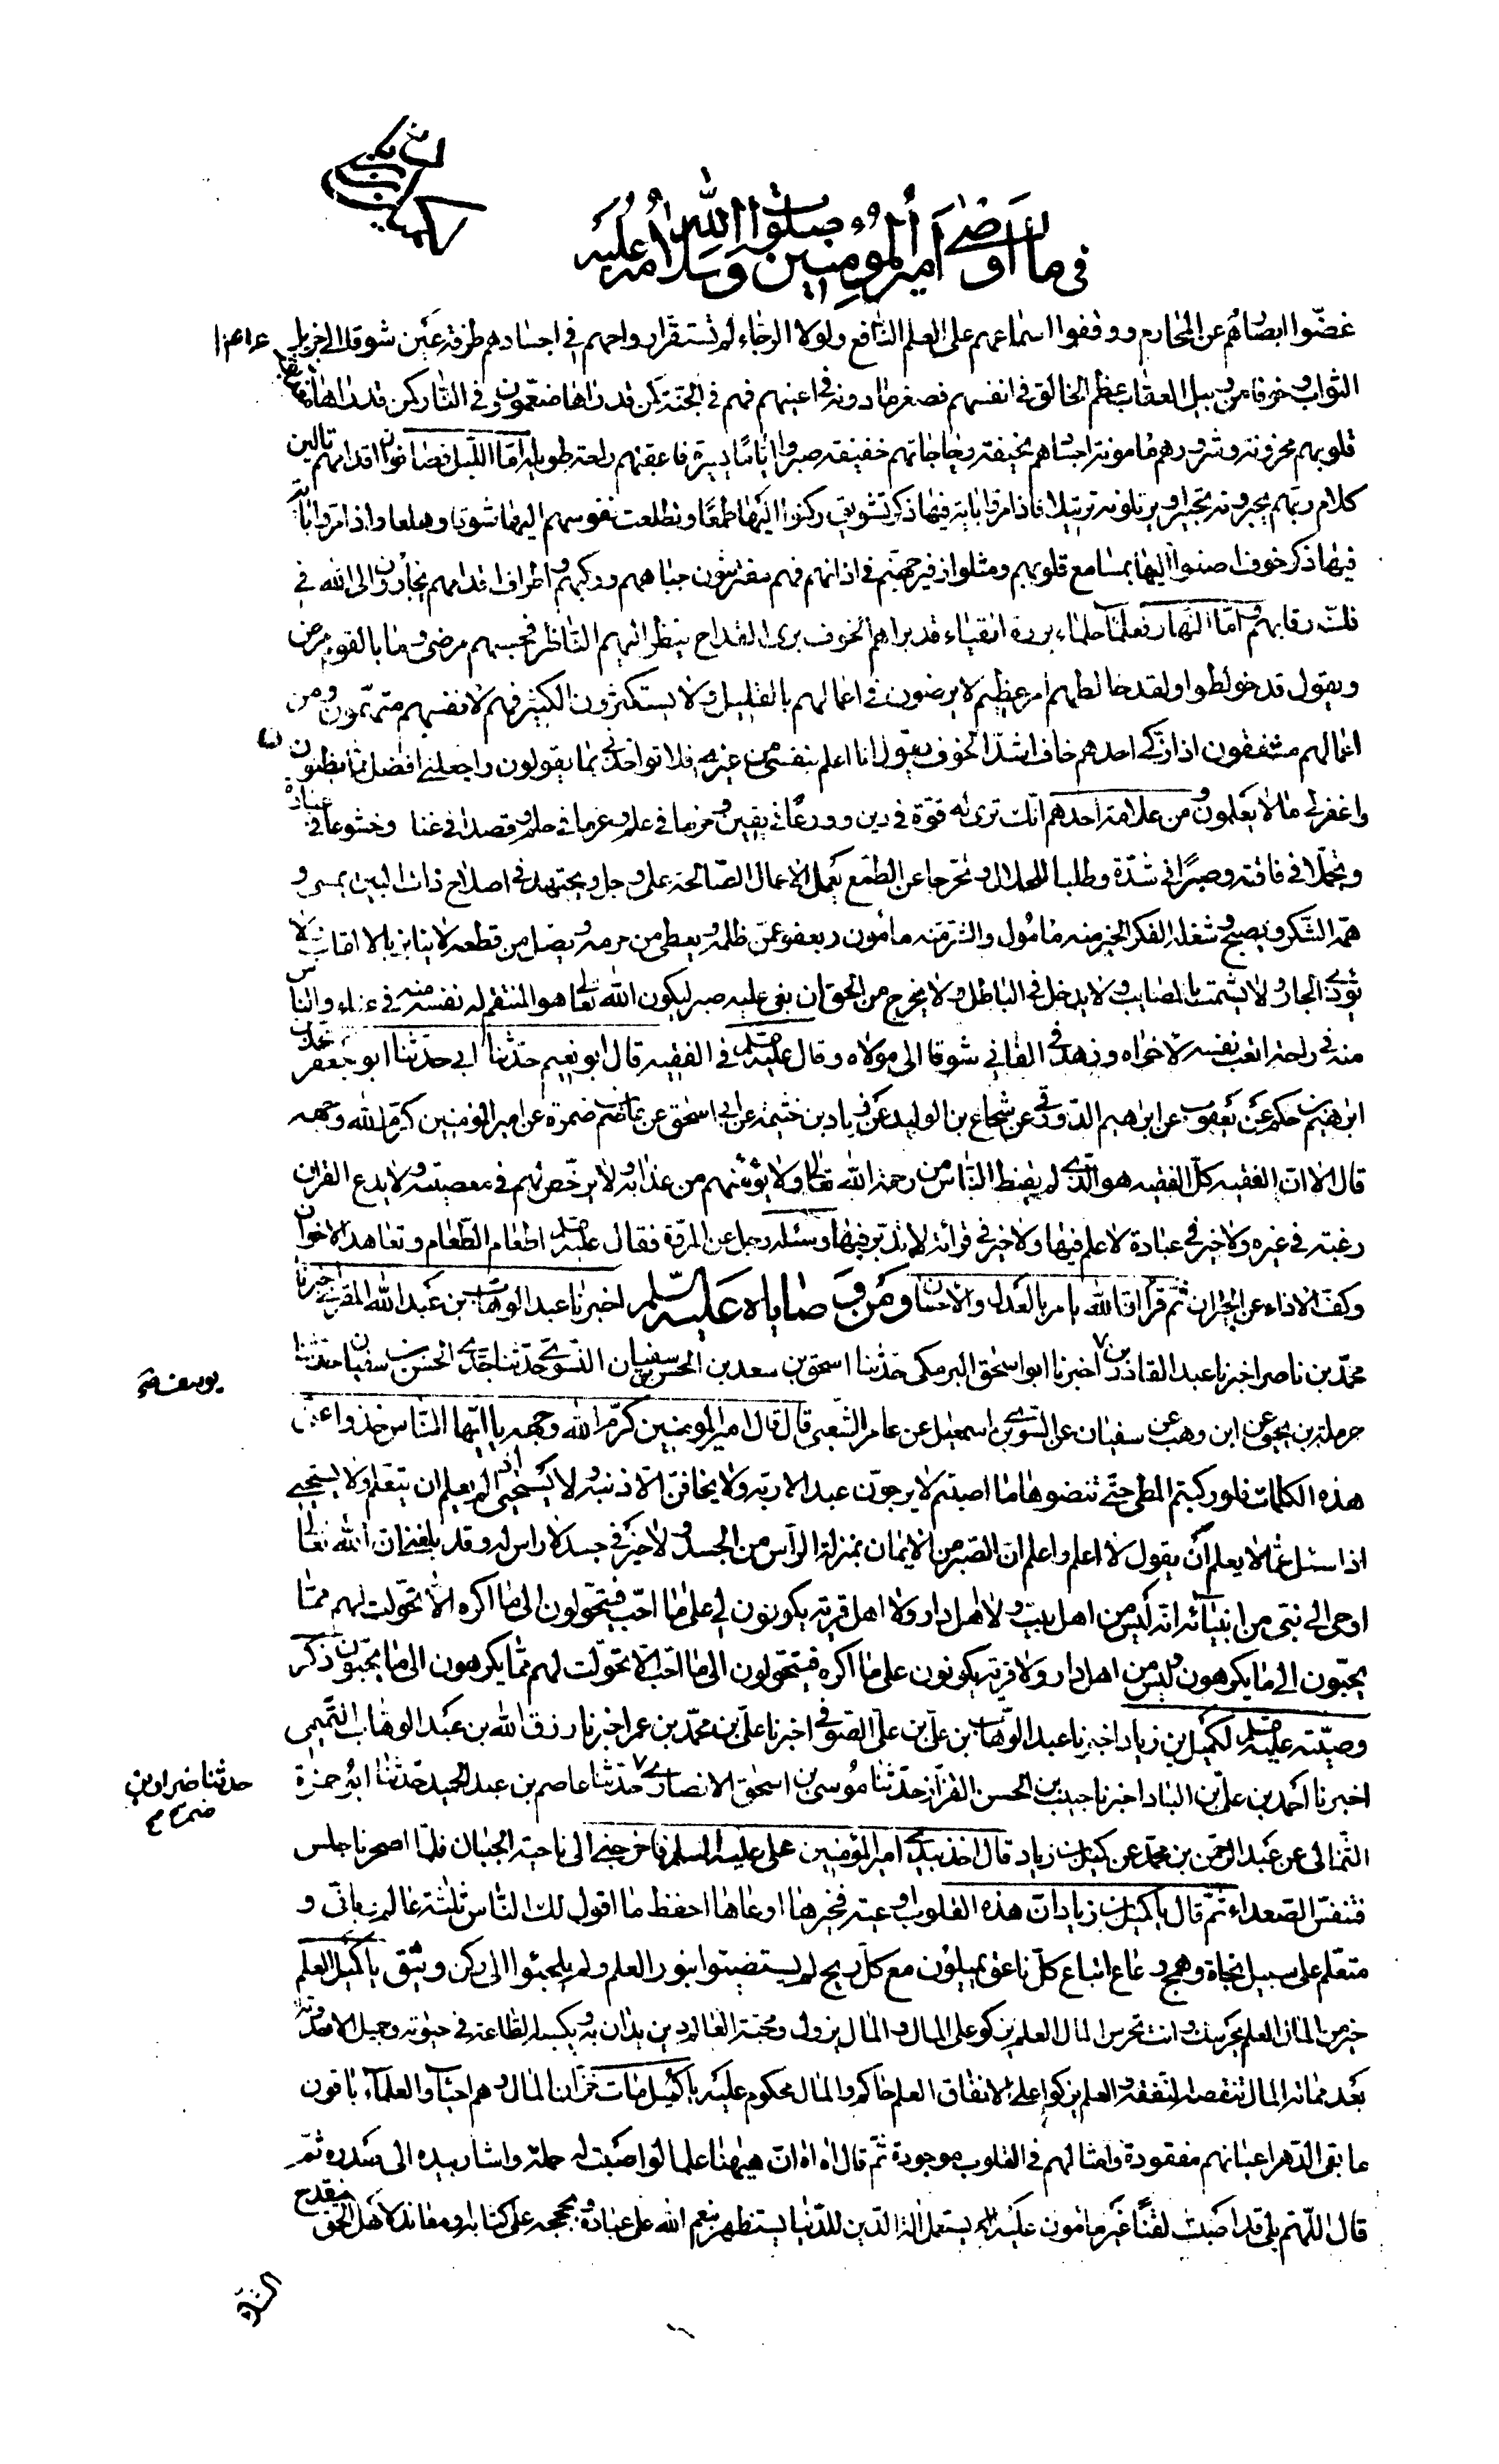 في ما اوصى امير المؤمنين صلوات الله وسلامه عليه
غضّوا ابصارهم عن المحارم ووقفوا اسماعهم على العلم النافع ولولا الرجاء لم تستقر ارواحهم في اجسادهم طرفة عين شوقا الى جزيل
الثواب وخوفا من وبيل العقاب عظم الخالق في انفسهم فصغر ما دونه في اعينهم فهم في الجنة كمن قد راها منعّمون وفي النار كمن قد راها
قلوبهم محزونة وشرورهم مامونة اجسادهم نحيفة وحاجاتهم خفيفة صبروا اياما يسيرة فاعقبتهم راحة طويلة امّا الليل فصافون اقدامهم تالين
كلام ربّهم يحبرونه تحبيرا ويرتلونه ترتيلا فاذا مرّوا باية فيها ذكر تشويق ركنوا اليها طمعًا وتطلعت نفوسهم اليها شوقا وهلعا واذا مرّوا باية
فيها ذكر خوف اصغوا اليها بمسامع قلوبهم ومثلوا زفير جهنّم في اذانهم فهم مفترشون جباههم وركبهم واطراف اقدامهم يجأرون الى الله في
فكّ رقابهم وامّا النهار فعلماء حلماء بررة اتقياء قد براهم الخوف برى القداح ينظر اليهم الناظر فيحسبهم مرضى وما بالقوم مرض
ويقول قد خولطوا ولقد خالطهم امر عظيم لا يرضون في اعمالهم بالقليل ولا يستكثرون الكثير فهم لانفسهم متهّمون ومن
اعمالهم مشفقون اذا زكّى احدهم خاف اشدّ الخوف يقول انا اعلم بنفسي من غيري فلا تواخذني بما يقولون واجعلني افضل مما يظنون
واغفر لي ما لا يعلمون ومن علامة احدهم انّك ترى له قوّة في دين وورعًا في يقين وحزما في علم وعزما في حلم وقصدا في غنا وخشوعا في عبادة
وتجمّلا في فاقة وصبرًا في شدّة وطلبا للحلال وتحرجا عن الطمع يعمل الاعمال الصّالحة على وجل ويجتهد في اصلاح ذات البين يمسي و
همّه الشكر ويصبح وشغله الفكر الخير منه مامول والشر منه مأمون ويعفو عمّن ظلمه ويعطي من حرمه ويصل من قطعه لا ينابز بالالقاب ولا
يؤذي الجار ولا يشمت بالمصايب ولا يدخل في الباطل ولا يخرج من الحق ان بغي عليه صبر ليكون الله تعالى هو المنتقم له نفسه منه في عناء والناس
منه في راحة اتعب نفسه لاخراه وزهد في الفاني شوقا الى مولاه وقال عليه السلم في الفقيه قال ابو نعيم حدّثنا ابي حدّثنا ابو جعفر محمد بن
ابراهيم بن حكم عن يعقوب عن ابرهيم الدّورقي عن شجاع بن الوليد عن زياد بن خثيمة عن ابي اسحق عن عاصم بن ضمرة عن امير المؤمنين كرّم الله وجهه
قال الا انّ الفقيه كلّ الفقيه هو الّذي لم يقنط النّاس من رحمة الله تعالى ولا يؤمنهم من عذابه ولا يرخّص لهم في معصيته ولا يدع القران
رغبة في غيره ولا خير في عبادة لا علم فيها ولا خير في قرائة لا تدبّر فيها وسئله رجل عن المروّة فقال عليه السلم اطعام الطّعام وتعاهد الاخوان
وكفّ الاذاء عن الجيران ثمّ قرا انّ الله يامر بالعدل والاحسان ومن وصاياه عليه السلم اخبرنا عبد الوهاب بن عبد الله المقري اخبرنا
محمّد بن ناصر اخبرنا عبد القادر بن اخبرنا ابو اسحق البرمكي حدّثنا اسحق بن سعد بن الحسن بن سفيان النسوي حدّثنا جدّي الحسن بن سفيان حدثنا
يوسف صح
حرملة بن يحيى عن ابن وهب عن سفيان عن السّري بن اسمعيل عن عامر الشّعبي قال قال امير المؤمنين كرّم الله وجهه يا ايّها النّاس خذوا عنّي
هذه الكلمات فلو ركبتم المطي حتّى تنضوها ما اصبتم لا يرجونّ عبد الا ربّه ولا يخافنّ الّا ذنبه ولا يستحيي اذا لم يعلم ان يتعلم ولا يستحيي
اذا سئل عمّا لا يعلم ان يقول لا اعلم واعلم انّ الصّبر من الايمان بمنزلة الرأس من الجسد ولا خير في جسد لا راس له وقد بلغني ان الله تعالى
اوحى الى نبيّ من انبيائه انّه ليس من اهل بيت ولا اهل دار ولا اهل قرية يكونون لي على ما احبّ فيتحوّلون الى ما اكره الّا تحوّلت لهم ممّا
يحبّون الى ما يكرهون وليس من اهل دار ولا قرية يكونون على ما اكره فيتحوّلون الى ما احبّ الا تحوّلت لهم ممّا يكرهون الى ما يحبّون ذكر
وصيّته عليه السلم لكميل بن زياد اخبرنا عبد الوهّاب بن علي بن علي الصّوفي اخبرنا علي بن محمّد بن عمر اخبرنا رزق الله بن عبد الوهاب التّميمي
اخبرنا احمد بن علي بن الباد اخبرنا حبيب بن الحسن القزّاز حدّثنا موسى بن اسحق الانصاري حدّثنا عاصم بن عبد الحميد حدّثنا ابو حمزة
حدثنا ضرار بن
ضمرة صح
الثمالي عن عبد الرّحمن بن محمّد عن كميل بن زياد قال اخذ بيدي امير المؤمنين علي عليه السلم فاخرجني الى ناحية الجبّان فلمّا اصحرنا جلس
فتنفّس الصّعداء ثمّ قال يا كميل بن زياد انّ هذه القلوب اوعية فخيرها اوعاها احفظ ما اقول لك النّاس ثلثة عالم ربانّي و
متعلم على سبيل نجاة وهمج رعاع اتباع كلّ ناعق يميلون مع كلّ ريح لم يستضيئوا بنور العلم ولم يلجئوا الى ركن وثيق يا كميل العلم
خير من المال العلم يحرسك وانت تحرس المال العلم يزكو على المال والمال يزول ومحبّة العالم دين يدان به ويكسبه الطاعة في حيوته وجميل الاحدوثة
بعد مماته المال تنقصه النّفقة والعلم يزكوا على الانفاق العلم حاكم والمال محكوم عليه يا كميل مات خزّان المال وهم احياء والعلماء باقون
ما بقي الدّهر اعيانهم مفقودة وامثالهم في القلوب موجودة ثمّ قال اه اه انّ هيهنا علما لو اصبت له حملة واشار بيده الى صدره ثمّ
قال اللّهم بلى قد اصبت لقنًا غير مامون عليه يستعمل الة الدّين للدّنيا يستظهر بنعم الله على عباده وبحججه على كتابه او معاند لاهل الحق